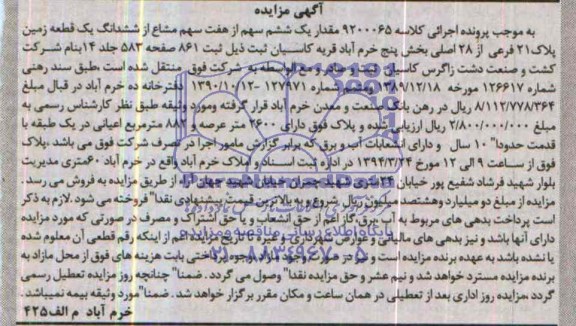 آگهی مزایده
به موجب پرونده اجرائی کلاسه ۹۲۰۰۰۶۵ مقدار یک ششم سهم از هفت سهم مشاع از ششدانگ یک قطعه زمین
پلاک ۲۱ فرعی از ۲۸ اصلی بخش پنج خرم آباد قریه کاسیان ثبت ذیل ثبت ۸۶۱ صفحه ۵۸۳ جلد ۱۴ بنام شرکت
کشت و صنعت دشت زاگرس کاسیان ثبت و سند صادر و مع الواسطه به شرکت فوق منتقل شده است .طبق سند رهنی
شماره ۱۲۶۶۱۷ مورخه ۱۳۸۹/۱۲/۱۸ و ۱۲۷۹۷۱ - ۱۳۹۰/۱۰/۱۲ دفترخانه ده خرم آباد در قبال مبلغ
۸/۱۱۲/۷۷۸/۳۶۴ ریال در رهن بانک صنعت و معدن خرم آباد قرار گرفته ومورد وثیقه طبق نظر کارشناس رسمی به
مبلغ ۲/۸۰۰/۰۰۰/۰۰۰ ریال ارزیابی شده و پلاک فوق دارای ۲۶۰۰ متر عرصه و ۸۸۲ مترمربع اعیانی در یک طبقه با
قدمت حدودا" ۱۰ سال و دارای انشعابات آب و برق که برابر گزارش مامور اجرا در تصرف شرکت فوق می باشد ،پلاک
فوق از ساعت ۹ الی ۱۲ مورخ ۱۳۹۴/۳/۲۴ در اداره ثبت اسناد و املاک خرم آباد واقع در خرم آباد ۶۰متری مدیریت
بلوار شهید فرشاد شفیع پور خیابان ۲۴متری شهید چمران خیابان شهید جهان آراء از طریق مزایده به فروش می رسد .
مزایده از مبلغ دو میلیارد وهشتصد میلیون ریال شروع و به بالاترین قیمت پیشنهادی نقدا" فروخته می شود .لازم به ذکر
است پرداخت بدهی های مربوط به آب ،برق،گاز اعم از حق انشعاب و یا حق اشتراک و مصرف در صورتی که مورد مزایده
دارای آنها باشد و نیز بدهی های مالیاتی و عوارض شهرداری و غیره تا تاریخ مزایده اعم از اینکه رقم قطعی آن معلوم شده
یا نشده باشد به عهده برنده مزایده است و نیز در صورت وجود مازاد وجوه پرداختی بابت هزینه های فوق از محل مازاد به
برنده مزایده مسترد خواهد شد و نیم عشر و حق مزایده نقدا" وصول می گردد . ضمنا" چنانچه روز مزایده تعطیل رسمی
گردد ،مزایده روز اداری بعد از تعطیلی در همان ساعت و مکان مقرر برگزار خواهد شد . ضمنا" مورد وثیقه بیمه نمیباشد .
خرم آباد م الف۴۲۵
پایگاه اطلاع رسانی مناقصه و مزایده